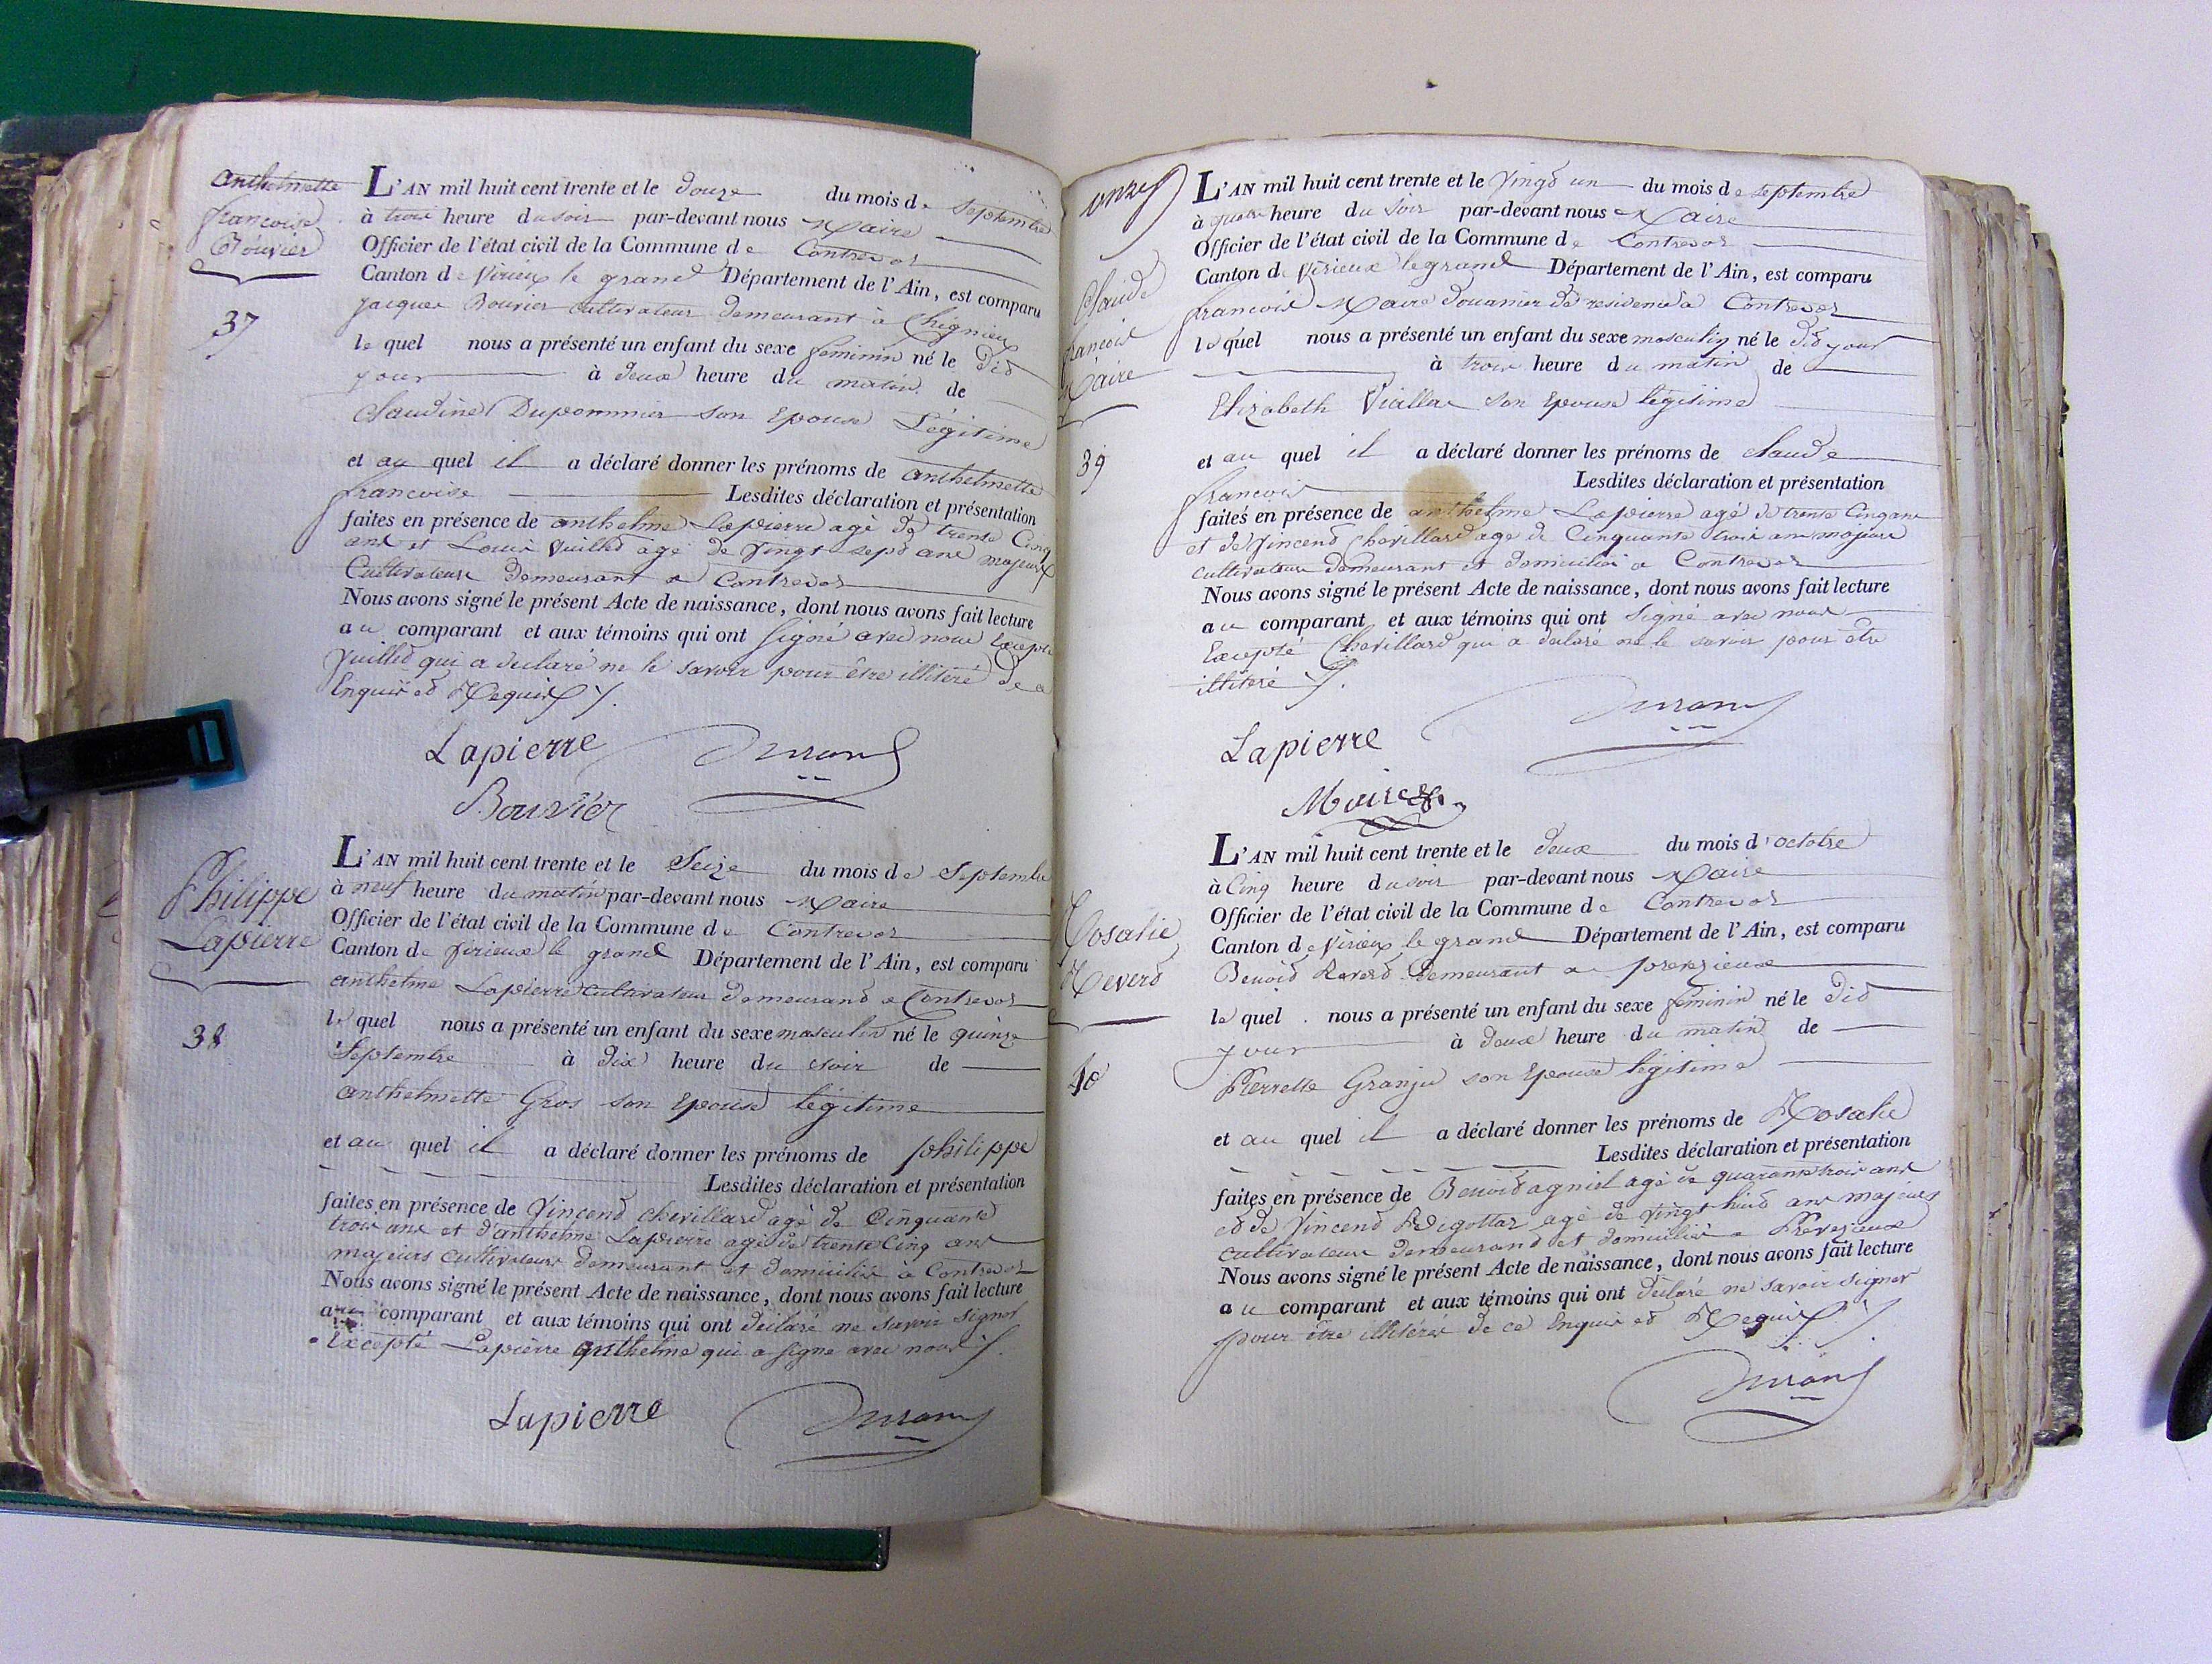 anthelmette
francoise
Bouvier
37
L'AN mil huit cent trente et le douze du mois de septembre
à trois heure du soir par-devant nous Maire
Officier de l'état civil de la Commune de Contrevoz
Canton de Virieux le grand Département de l'Ain, est comparu
jacques Bouvier cultivateur demeurant à Chignieu
le quel nous a présenté un enfant du sexe feminin né le did
jour à deux heure du matin de
Claudine Dupommier son Epouse Légitime
et au quel il a déclaré donner les prénoms de anthelmette
francoise Lesdites déclaration et présentation
faites en présence de anthelme Lapierre agé de trente Cinq
ans et Louis Vuilled agé de Vingt sept ans majeurs
Cultivateurs demeurant a Contrevoz
Nous avons signé le présent Acte de naissance, dont nous avons fait lecture
au comparant et aux témoins qui ont signé avec nous Excepté
Vuilled qui a déclaré ne le savoir pour être illitéré de ce
Enquis ed Requis
Lapierre Durand
Bouvier
Philippe
Lapierre
38
L'AN mil huit cent trente et le Seize du mois de Septembre
à neuf heure du matin par-devant nous Maire
Officier de l'état civil de la Commune de Contrevoz
Canton de Virieux le grand Département de l'Ain, est comparu
anthelme Lapierre cultivateur demeurand a Contrevoz
le quel nous a présenté un enfant du sexe masculin né le quinze
Septembre à dix heure du soir de
anthelmette Gros son Epouse légitime
et au quel il a déclaré donner les prénoms de philippe
Lesdites déclaration et présentation
faites en présence de Vincend chevillard agé de Cinquante
trois ans et d'anthelme Lapierre agé de trente Cinq ans
majeurs cultivateurs demeurant et domicilié à Contrevoz
Nous avons signé le présent Acte de naissance, dont nous avons fait lecture
au comparant et aux témoins qui ont déclaré ne savoir signer
Excepté Lapierre anthelme qui a signé avec nous
Lapierre Durand
onze
Claude
francois
Maire
39
L'AN mil huit cent trente et le Vingd un du mois de septembre
à quatre heure du soir par-devant nous Maire
Officier de l'état civil de la Commune de Contrevoz
Canton de Virieux le grand Département de l'Ain, est comparu
francois Maire douanier de residence a Contrevoz
le quel nous a présenté un enfant du sexe masculin né le did jour
à trois heure du matin de
Elizabeth son Epouse légitime
et au quel il a déclaré donner les prénoms de claude
francois Lesdites déclaration et présentation
faites en présence de anthelme Lapierre agé de trente Cinq ans
et de Vincend Chevillard agé de Cinquante trois ans majeurs
cultivateurs demeurant et domicilié a Contrevoz
Nous avons signé le présent Acte de naissance, dont nous avons fait lecture
au comparant et aux témoins qui ont signé avec nous
Excepté Chevillard qui a déclaré ne le savoir pour être
illitéré
Durand
Lapierre
Maire
Rosalie
Reverd
40
L'AN mil huit cent trente et le deux du mois d'octobre
à Cinq heure du soir par-devant nous Maire
Officier de l'état civil de la Commune de Contrevoz
Canton de Virieux le grand Département de l'Ain, est comparu
Benoid Reverd demeurant a preveyzieux
le quel nous a présenté un enfant du sexe feminin né le did
jour à deux heure du matin de
Pierrette Granju son Epouse légitime
et au quel il a déclaré donner les prénoms de Rosalie
Lesdites déclaration et présentation
faites en présence de Benoid agniel agé de quarante trois ans
ed de Vincend agé de vingt huid ans majeurs
cultivateurs demeurand et domicilié a Preveyzieux
Nous avons signé le présent Acte de naissance, dont nous avons fait lecture
au comparant et aux témoins qui ont déclaré ne savoir signer
pour être illitérés de ce Enquis ed Requis
Durand